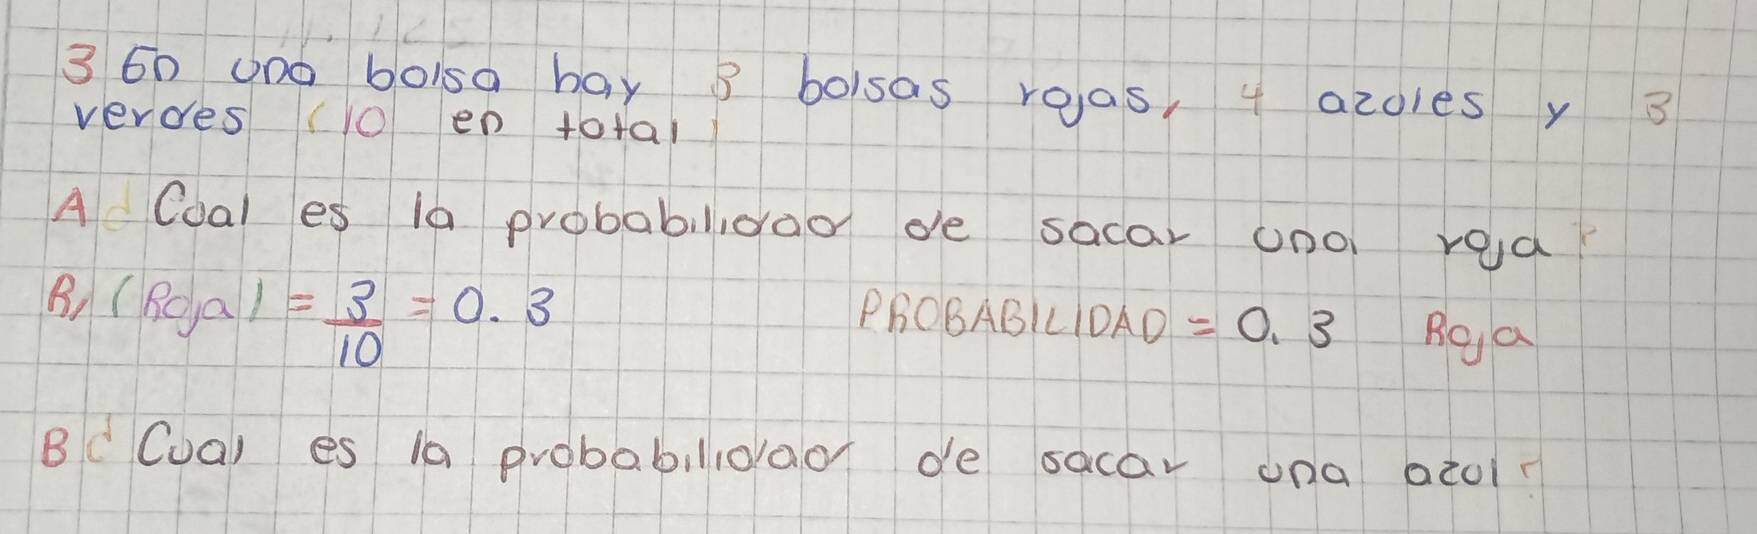 3 En una bolsa hay 3 bolsas rojas, 4 azules y 3
verdes (10 en total)
A ¿Cual es la probabilidad de sacar una roja?
R/ (Roja) = 3/10 = 0.3 PROBABILIDAD = 0.3 Roja
B ¿Cual es la probabilidad de sacar una azul?